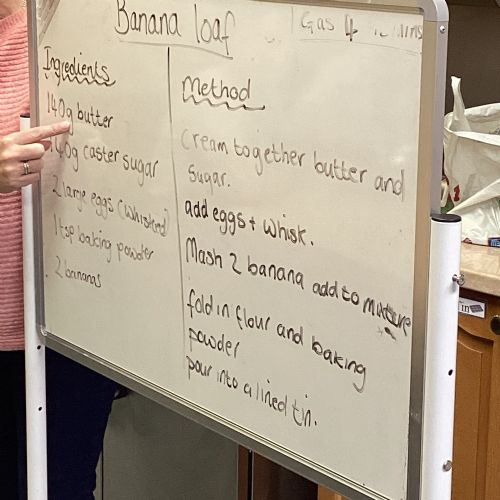 Banana loaf
Gas 4
Ingredients
140g butter
140g caster sugar
2 large eggs (whisked)
1tsp baking powder
2 bananas
Method
Cream together butter and
sugar.
add eggs + whisk.
Mash 2 banana add to mixture
fold in flour and baking
powder
pour into a lined tin.